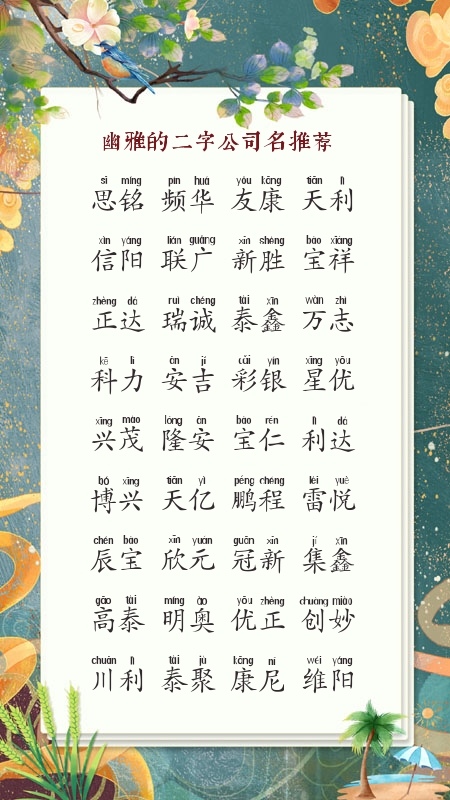 幽雅的二字公司名推荐
sī míng pín huá yǒu kāng tiān lì
思铭 频华 友康 天利
xìn yáng lián guǎng xīn shèng bǎo xiáng
信阳 联广 新胜 宝祥
zhèng dá ruì chéng tài xīn wàn zhì
正达 瑞诚 泰鑫 万志
kē lì ān jí cǎi yín xīng yōu
科力 安吉 彩银 星优
xīng mào lóng ān bǎo rén lì dá
兴茂 隆安 宝仁 利达
bó xīng tiān yì péng chéng léi yuè
博兴 天亿 鹏程 雷悦
chén bǎo xīn yuán guān xīn jí xīn
辰宝 欣元 冠新 集鑫
gāo tài míng ào yōu zhèng chuàng miào
高泰 明奥 优正 创妙
chuān lì tài jù kāng ní wéi yáng
川利 泰聚 康尼 维阳